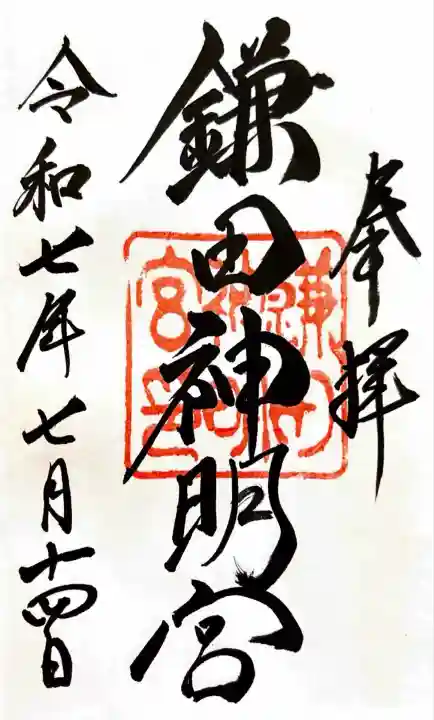 奉拝
鎌田神明宮
令和七年七月十四日